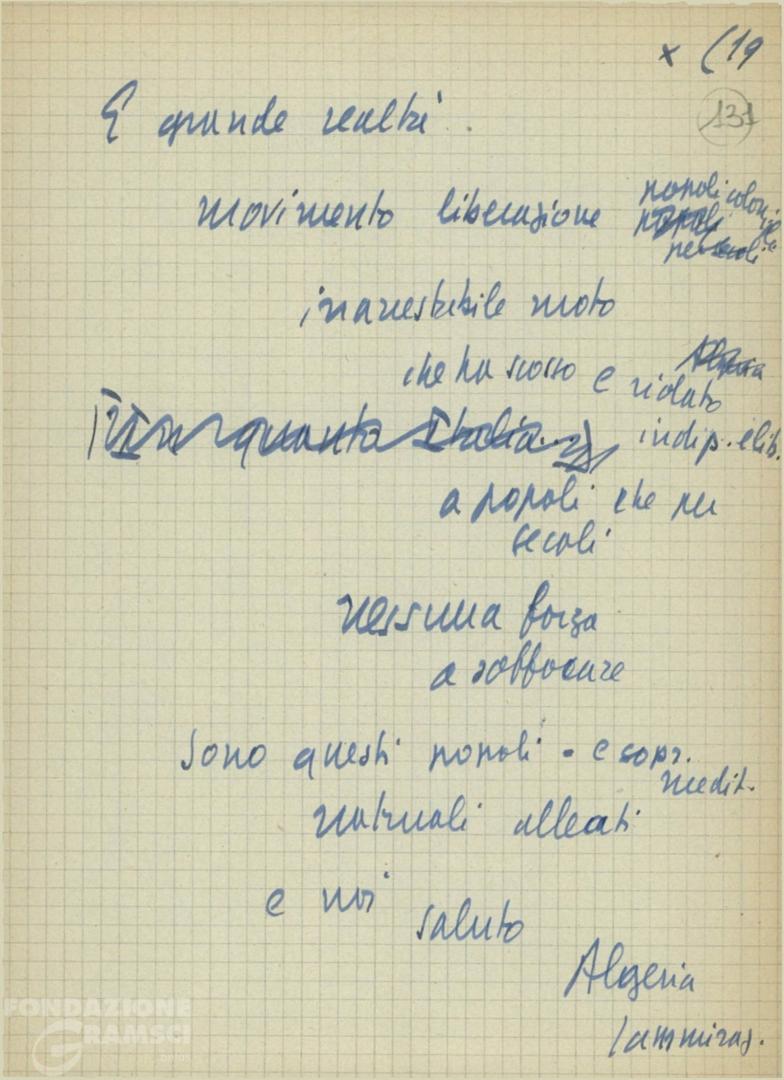 x (19
131
E grande realtà.
movimento liberazione popoli coloni
inarrestabile moto
che ha scosso e ridato
indip. e lib.
in quanto Italia...
a popoli che per
secoli
nessuna forza
a soffocare
sono questi popoli - e sopr.
medit.
naturali alleati
e noi
saluto
Algeria
ammiraz.
FONDAZIONE
GRAMSCI